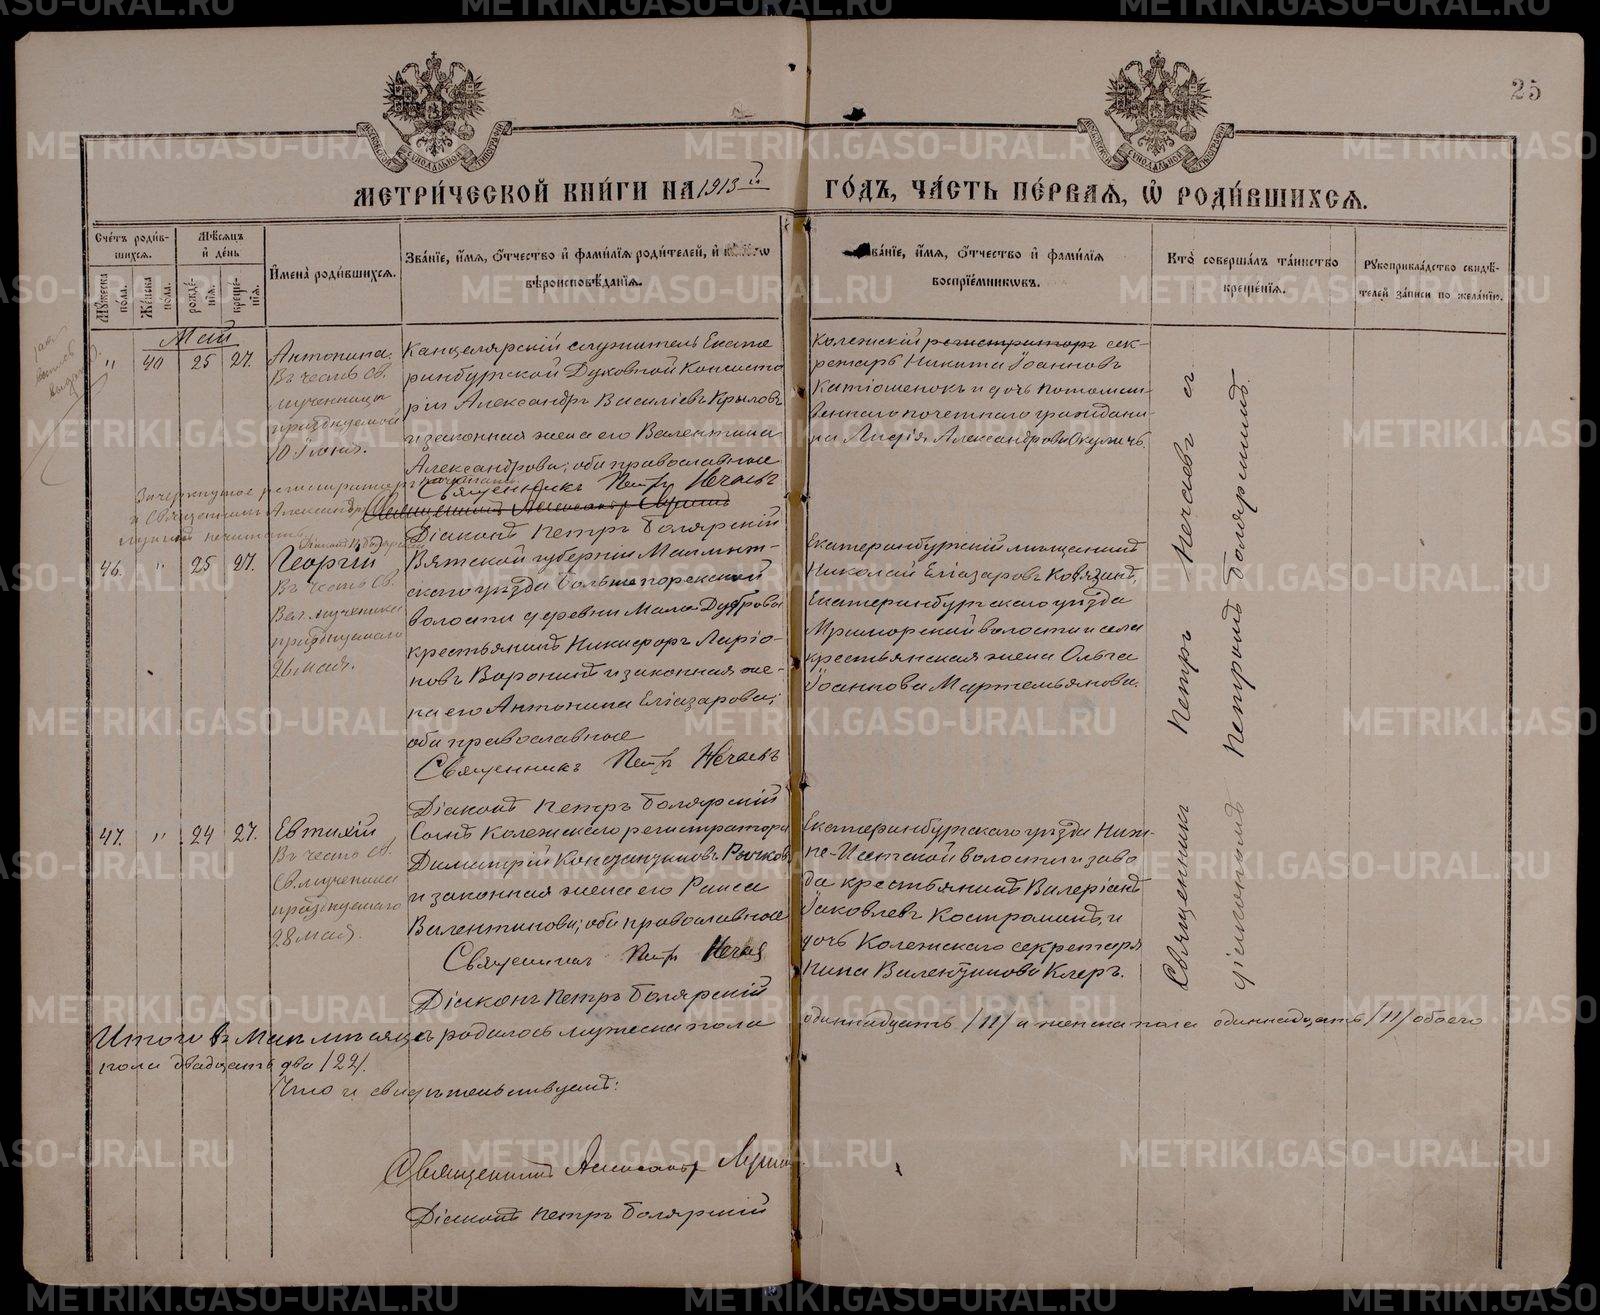 25
МЕТРИ́ЧЕСКОЙ КНИ́ГИ НА 1913й ГО́ДЪ, ЧА́СТЬ ПЕ́РВАЯ, Ѿ РОДИ́ВШИХСЯ.
Сче́тъ роди́в-
шихся.
Му́жеска пола.
Же́нска пола.
Мѣ́сяцъ и҆ де́нь
рожде́нїя.
креще́нїя.
И҆мена̀ роди́вшихся.
Зва́нїе, и҆́мя, ѻ҆́тчество и҆ фами́лїя роди́телей, и҆
вѣроисповѣ́данїя.
Зва́нїе, и҆́мя, ѻ҆́тчество и҆ фами́лїя
воспрїе́мникѡвъ.
Кто̀ соверша́лъ та́инство
креще́нїя.
Рꙋкоприкла́дство свидѣ́-
телей за́писи по жела́нїю.
Май
" 40 25 27.
Антонина.
Въ честь Св.
мученицы
празднуемой
10 Іюня.
Канцелярскій служитель Екате
ринбургской Духовной Консисто
ріи Александръ Василіевъ Крыловъ
и законная жена его Валентина
Александрова; оба православные
Священникъ Петръ Нечаевъ
Діаконъ Петръ Болярскій
Колежскій регистраторъ сек-
ретарь Никита Іоанновъ
Катюшенокъ и дочь потомст-
веннаго почетнаго гражда́ни-
на Лидія Александрова Окуличъ.
Зачеркнутое регистраторъ
и Священникъ Александръ
46. " 25 27.
Георгій
Въ честь Св.
Вел. мученика
празднуемаго
26 мая.
Вятской губерніи Малмыж-
скаго уѣзда Большепорекской
волости деревни Мало-Дуброва
крестьянинъ Никифоръ Ларіо-
новъ Воронинъ и законная же-
на его Антонина Еліазарова;
оба православные
Священникъ Петръ Нечаевъ
Діаконъ Петръ Болярскій
Екатеринбургскій мѣщанинъ
Николай Еліазаровъ Ковязинъ,
Екатеринбургскаго уѣзда
Мраморской волости и села
крестьянская жена Ольга
Іоаннова Мартемьянова.
47. " 24 27.
Евтихій
Въ честь Св.
Св. мученика
празднуемаго
28 мая.
Сынъ Колежскаго регистратора
Димитрій Константиновъ Рычковъ
и законная жена его Раиса
Валентинова; оба православные
Священникъ Петръ Нечаевъ
Діаконъ Петръ Болярскій
Екатеринбургскаго уѣзда Ниж-
не-Исетской волости и заво
да крестьянинъ Валеріанъ
Іаковлевъ Костроминъ, и
дочь Колежскаго секретаря
Нина Валентинова Клеръ.
Священникъ Петръ Нечаевъ съ
діакономъ Петромъ Боляршимъ.
Итого въ Маѣ мѣсяцѣ родилось мужеска пола одиннадцать /11/ и женска пола одиннадцать /11/ обоего
пола двадцать два /22/.
Что и свидѣтельствуемъ:
Священникъ Александръ
Діаконъ Петръ Болярскій
METRIKI.GASO-URAL.RU